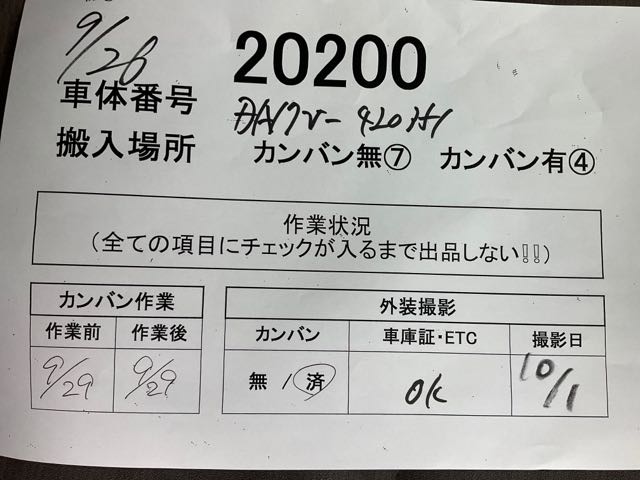 9/26
20200
車体番号 DA17V-420151
搬入場所 カンバン無⑦ カンバン有④
作業状況
(全ての項目にチェックが入るまで出品しない!!)
カンバン作業
作業前 作業後
9/29 9/29
外装撮影
カンバン 車庫証・ETC 撮影日
無 / 済 OK 10/1